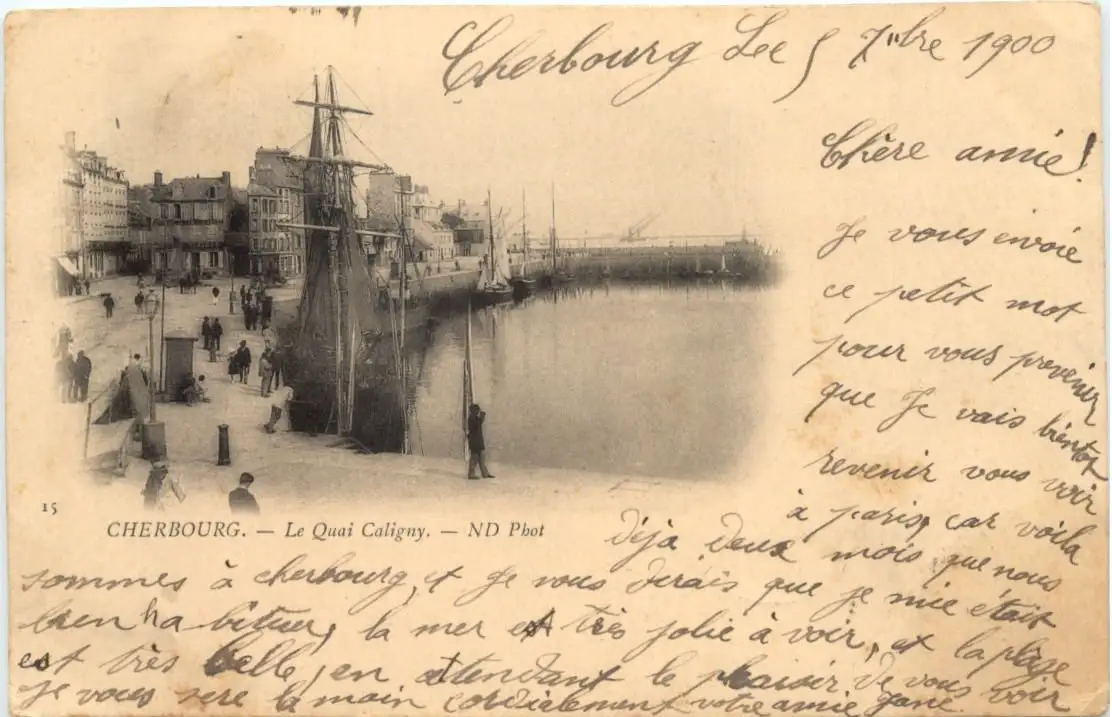 Cherbourg Lee 5 7bre 1900
Chère amie!
Je vous envoie
ce petit mot
pour vous prevenir
que Je vais bientot
revenir vous voir
à paris, car voila
15
CHERBOURG. — Le Quai Caligny. — ND Phot
déjà deux mois que nous
sommes à cherbourg, et Je vous dirais que je mie était
bien habituer, la mer est très jolie à voir, et la plage
est très belle, en attendant le plaisir de vous voir
Je vous sere la main cordialement votre amie